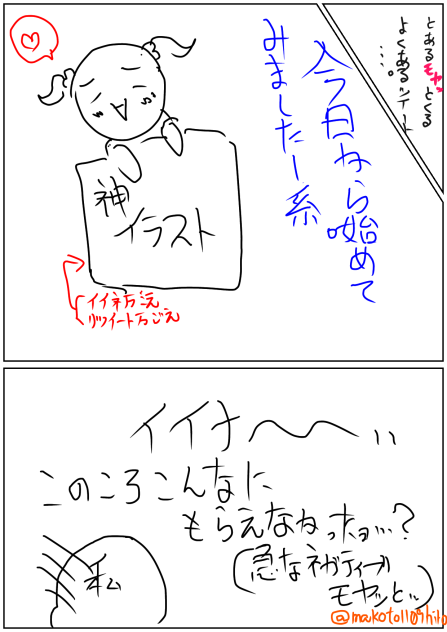 とあるモヤッとくる
よくあるツイート
・・・。
今日から始めて
みましたー系
神
イラスト
イイネ万ごえ
リツイート万ごえ
イイナ〜〜、、
このころこんなに
もらえなかったョ…?
(急なネガティーブ
モヤッと、、)
私
@makoto1109hiho